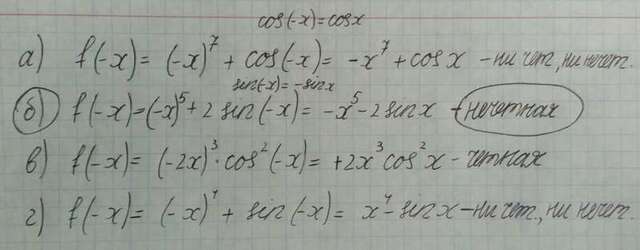 cos(-x)=cosx
а) f(-x)= (-x)⁷ + cos(-x)= -x⁷ + cos x - ни чет, ни нечет.
sin(-x)= -sinx
б) f(-x)=(-x)⁵+2 sin(-x)= -x⁵-2 sinx - нечетная
в) f(-x)= (-2x)³·cos²(-x)= +2x³cos²x - четная
г) f(-x)= (-x)⁴ + sin(-x)= x⁴-sinx-ни чет, ни нечет.